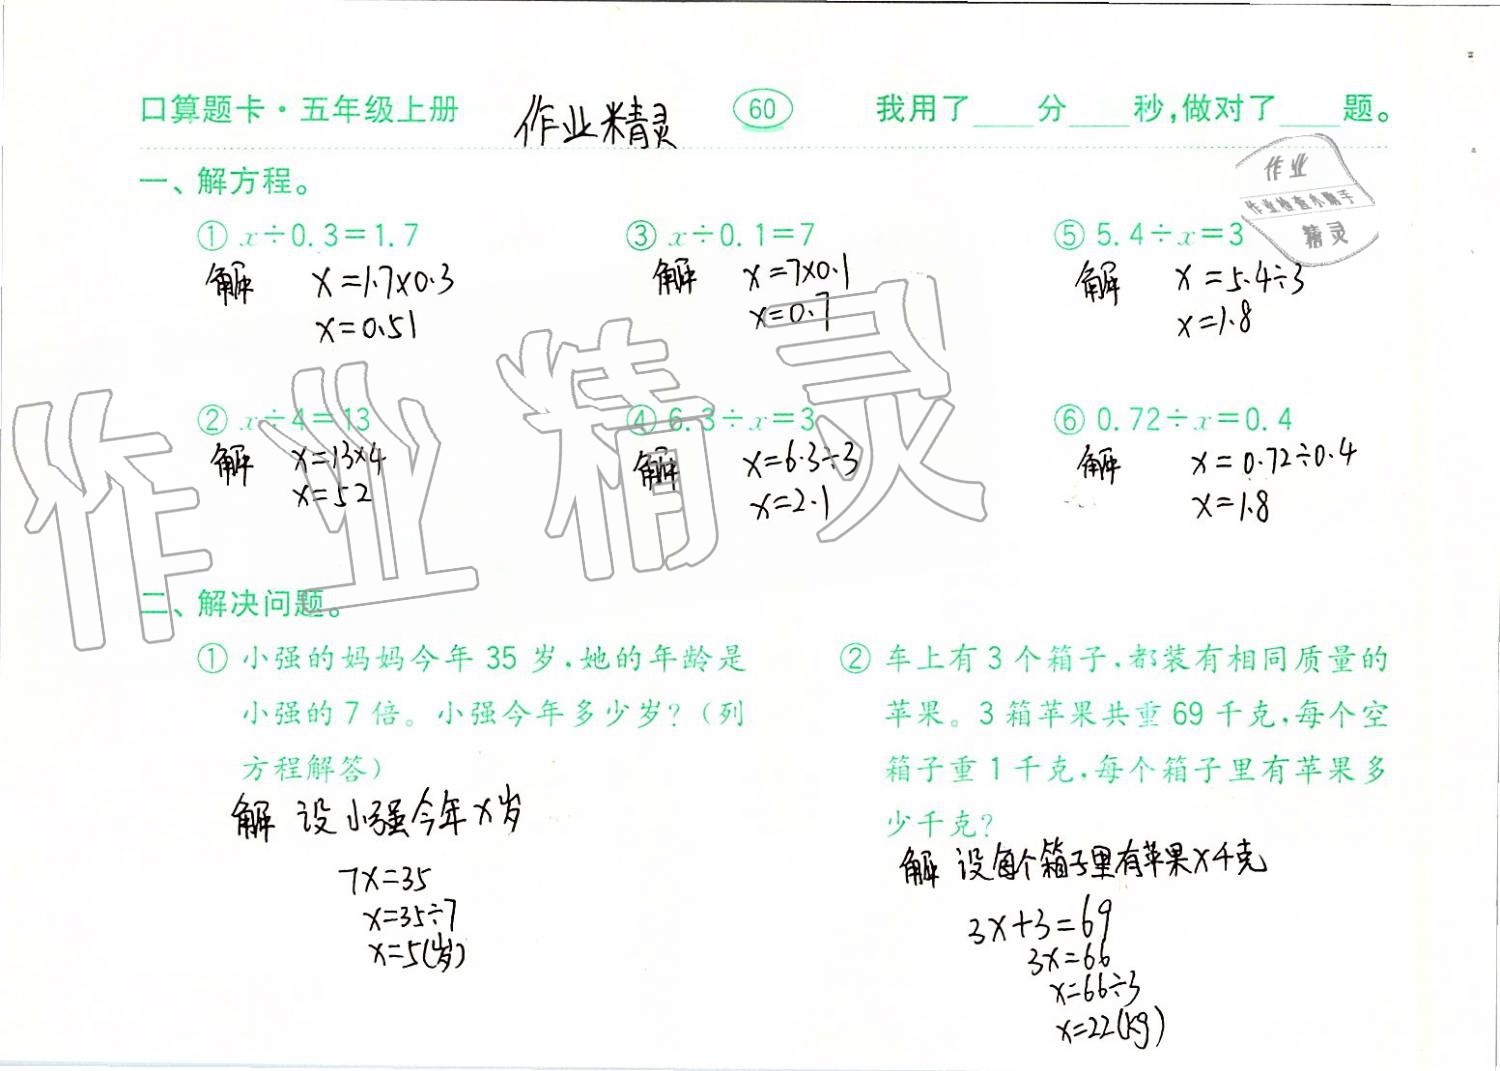 口算题卡·五年级上册 作业精灵 60 我用了____分____秒,做对了____题。
作业
作业检查小助手
精灵
一、解方程。
① x÷0.3=1.7 ③ x÷0.1=7 ⑤ 5.4÷x=3
解 x=1.7×0.3 解 x=7×0.1 解 x=5.4÷3
x=0.51 x=0.7 x=1.8
② x÷4=13 ④ 6.3÷x=3 ⑥ 0.72÷x=0.4
解 x=13×4 解 x=6.3÷3 解 x=0.72÷0.4
x=52 x=2.1 x=1.8
作业精灵
二、解决问题。
① 小强的妈妈今年35岁,她的年龄是
小强的7倍。小强今年多少岁?(列
方程解答)
解 设小强今年x岁
7x=35
x=35÷7
x=5(岁)
② 车上有3个箱子,都装有相同质量的
苹果。3箱苹果共重69千克,每个空
箱子重1千克,每个箱子里有苹果多
少千克?
解 设每个箱子里有苹果x千克
3x+3=69
3x=66
x=66÷3
x=22(kg)